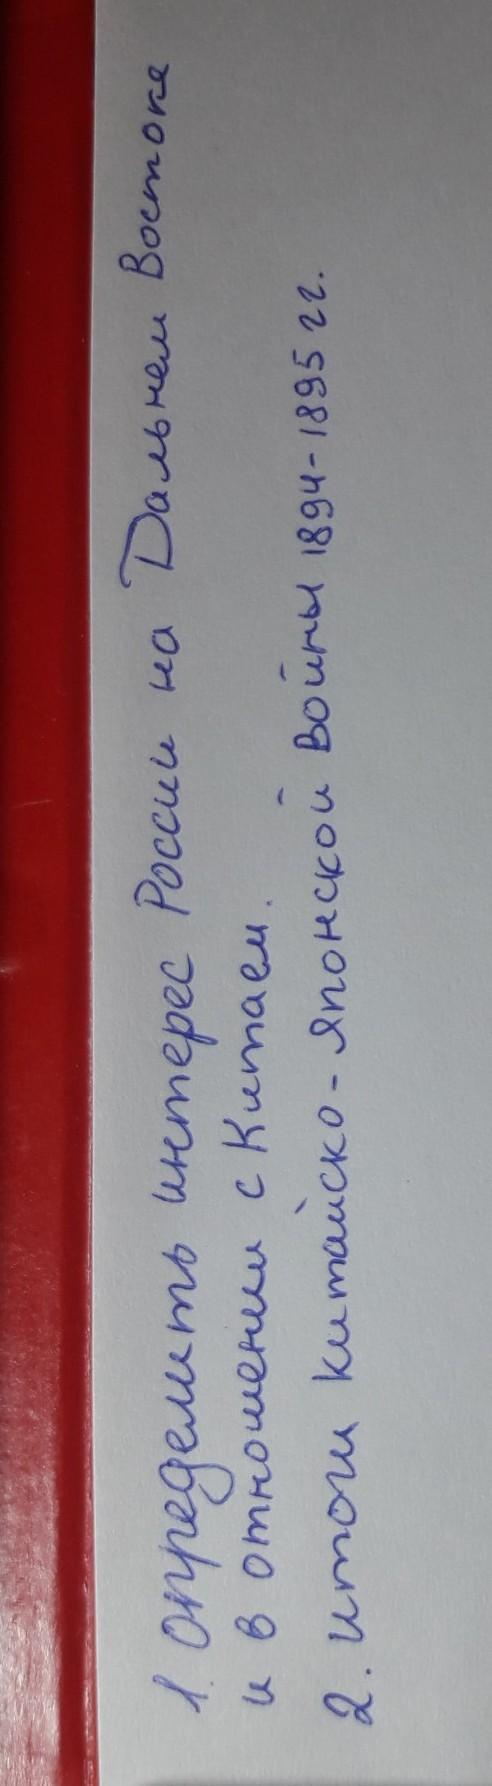 1. Определить интерес России на Дальнем Востоке
и в отношении с Китаем.
2. Итоги китайско-Японской Войны 1894-1895 гг.